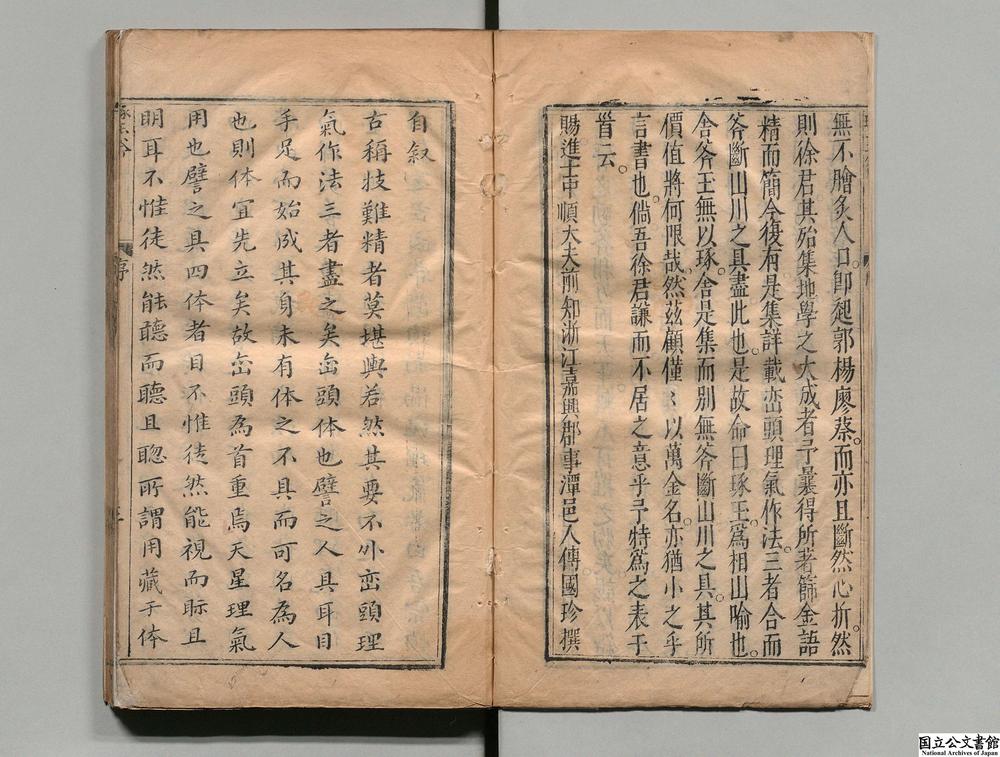 無不膾炙人口卽起郭楊廖蔡。而亦且斷然心折。然
則徐君其殆集地學之大成者予曩得所著篩金語
精而簡今復有是集詳載巒頭理氣作法。三者合而
斧斷山川之具盡此也。是故命曰琢玉。爲相山喻也。
舍斧玉無以琢。舍是集而別無斧斷山川之具。其所
價值將何限哉。然茲顧僅〻以萬金名。亦猶小之乎
言書也。倘吾徐君謙而不居之意乎予特爲之表于
首云。
賜進士中順大夫前知浙江嘉興郡事潭邑人傅國珍撰
自叙
古稱技難精者莫堪輿若然其要不外巒頭理
氣作法三者盡之矣巒頭体也譬之人具耳目
手足而始成其身未有体之不具而可名為人
也則体宜先立矣故巒頭為首重焉天星理氣
用也譬之具四体者目不惟徒然能視而眎且
明耳不惟徒然能聽而聽且聰所謂用藏于体
序
国立公文書館
National Archives of Japan